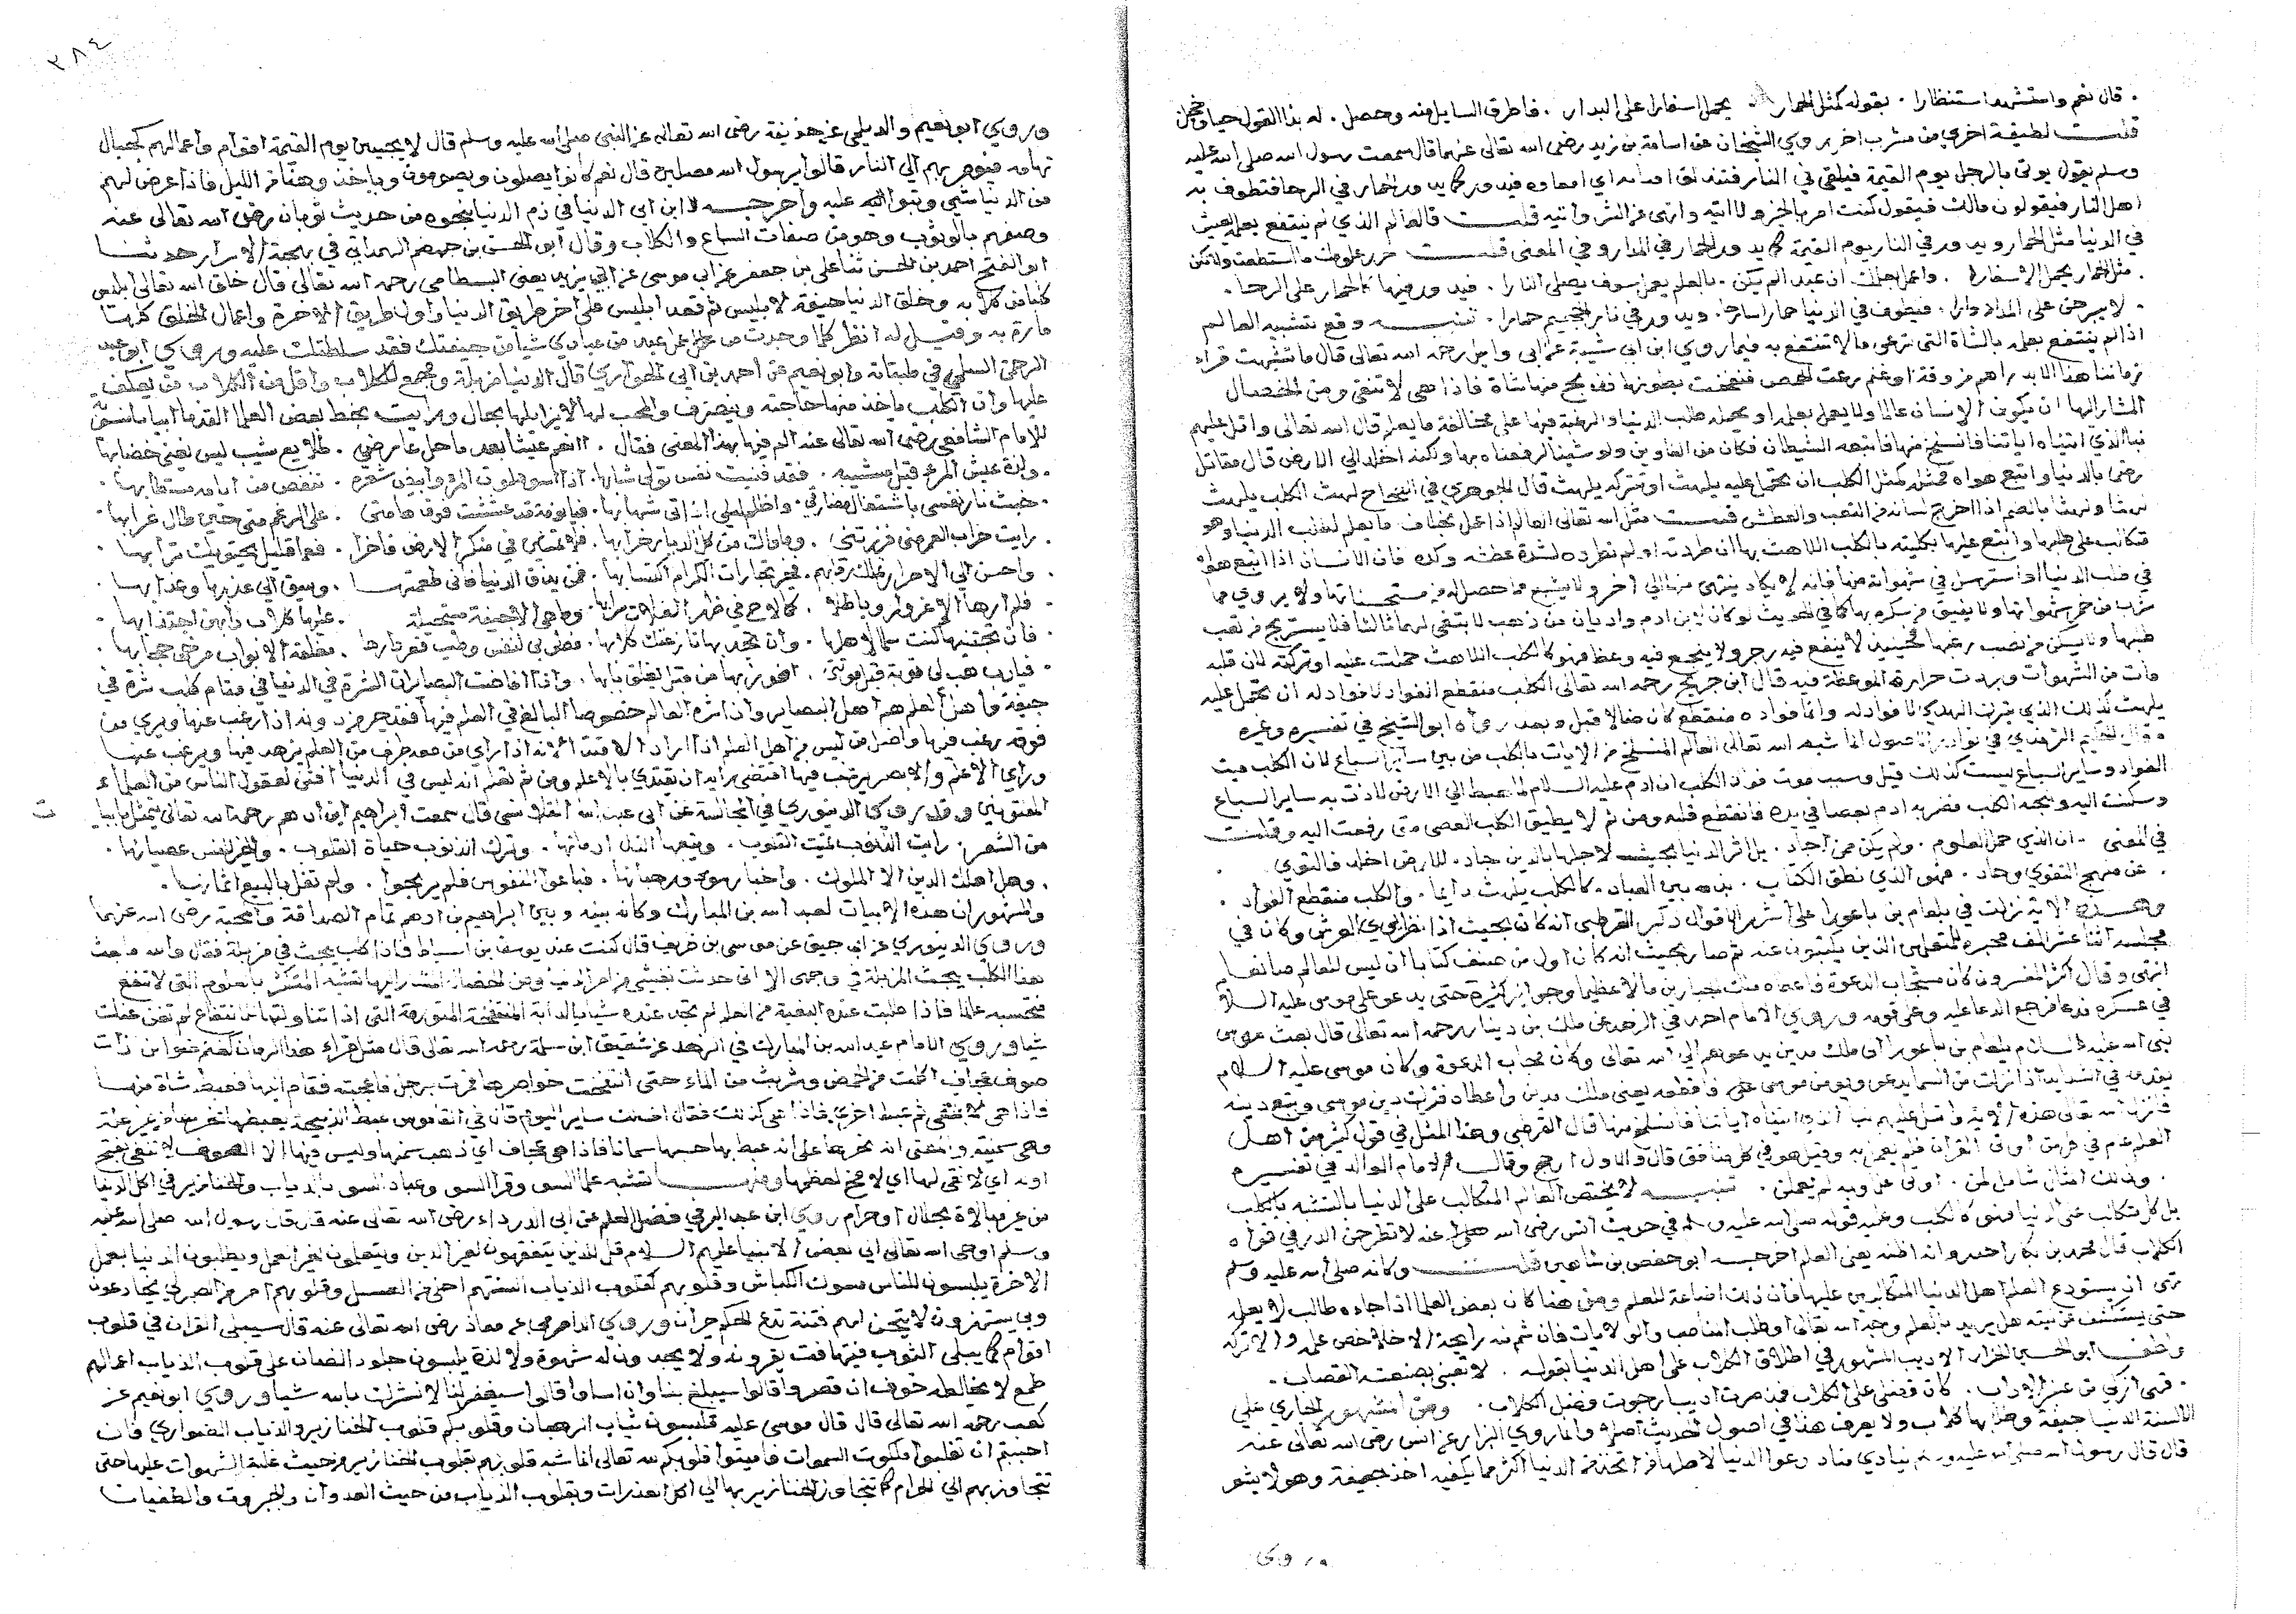 . قال نعم واستشهد استنظارا . بقوله كمثل الحمار . يحمل اسفارا على البدار . فاطرق السايل منه وحصل . له بذا القول حيا وخجل
قلت لطيفة اخري من مشرب اخر روي الشيخان عن اسامة بن زيد رضي الله تعالى عنهما قال سمعت رسول الله صلى الله عليه
وسلم يقول يوتى بالرجل يوم القيمة فيلقى في النار فتندلق اقتابه اي امعاوه فيدور كما يدور الحمار في الرحا فتطوف به
اهل النار فيقولون مالك فيقول كنت امر بالخير ولا اتيه وانهى عن الشر واتيه قلت فالعالم الذي لم ينتفع بعلمه يعيش
في الدنيا مثل الحمار ويدور في النار يوم القيمة كما يدور الحمار في المدار وفي المعنى قلت حرر علومك ما استطعت ولا تكن
. مثل الحمار يحمل الاسفارا . واعمل بعلمك ان عبدا لم يكن . بالعلم يعمل سوف يصلى النارا . فيدور فيها كالحمار على الرحا .
. لا يبرحن على المدا دوارا . فيطوف في الدنيا حمارا سارحا . ويدور في نار الجحيم حمارا . تنبيه وقع تشبيه العالم
اذا لم ينتفع بعلمه بالشاة التي ترعى ما لا تنتفع به فيما روي ابن ابي شيبة عن ابي وايل رحمه الله تعالى قال ما شبهت قراء
زماننا هذا الا بدراهم مزوقة او غنم رعت الحمض فنفخت بطونها فذبح منها شاة فاذا هي لا تنقى ومن الخصال
المشار اليها ان يكون الانسان عالما ولا يعمل بعلمه او يحمله طلب الدنيا والرغبة فيها على مخالفة ما يعلم قال الله تعالى واتل عليهم
نبا الذي اتيناه اياتنا فانسلخ منها فاتبعه الشيطان فكان من الغاوين ولو شينا لرفعناه بها ولكنه اخلد الي الارض قال مقاتل
رضى بالدنيا واتبع هواه فمثله كمثل الكلب ان تحمل عليه يلهث او تتركه يلهث قال الجوهري في الصحاح لهث الكلب يلهث
لهثا ولهاثا بالضم اذا اخرج لسانه من التعب والعطش قلت مثل الله تعالى العالم اذا عمل بخلاف ما يعلم لطلب الدنيا وهو
متكالب على طلبها واتبع عليها بكليته بالكلب اللاهث بها ان طردته او لم تطرده لشدة عطشه وكده فان الانسان اذا اتبع هواه
في طلب الدنيا واسترسل في شهواته منها فانه لا يكاد ينتهى منها الي اخر ولا يشبع مما حصل له من مستحسناتها ولا يروي مما
شراب من خمر شهواتها ولا يفيق من سكره بها كما في الحديث لو كان لابن ادم واديان من ذهب لابتغى لهما ثالثا فلا يستريح من تعب
طلبها ولا يسكن من نصب رغبها فحينيذ لا ينفع فيه زجر ولا ينجع فيه وعظ فهو كالكلب اللاهث حملت عليه او تركته لان قلبه
مات من الشهوات وبردت حرارة الموعظة فيه قال ابن جريج رحمه الله تعالى الكلب منقطع الفواد لا فواد له ان تحمل عليه
يلهث كذلك الذي يترك الهدي لا فواد له وانما فواده منقطع كان ضالا قبل وبعد رواه ابو الشيخ في تفسيره وغيره
وقال الحكيم الترمذي في نوادر الاصول انما شبه الله تعالى العالم المنسلخ من الايات بالكلب من بين ساير السباع لان الكلب ميت
الفواد وساير السباع ليست كذلك قيل وسبب موت فواد الكلب ان ادم عليه السلام لما هبط الي الارض لاذت به ساير السباع
وسكنت اليه ونبحه الكلب فضربه ادم بعصا في يده فانقطع قلبه ومن ثم لا يطيق الكلب العصى متى رفعت اليه وقلت
في المعنى . ان الذي حمل العلوم . ولم يكن ممن اجاد . بل اثر الدنيا بحيث لاجلها بالدين جاد . للارض اخلد فالتوي .
. عن منهج التقوي وحاد . فهو الذي نطق الكتاب . بذمه بين العباد . كالكلب يلهث دايما . والكلب منقطع الفواد .
وهذه الاية نزلت في بلعام بن باعورا على اشهر الاقوال ذكر القرطبي انه كان بحيث اذا نظر يري العرش وكان في
مجلسه اثنا عشر الف محبرة للمتعلمين الذين يكتبون عنه ثم صار بحيث انه كان اول من صنف كتابا ان ليس للعالم صانعا
انتهى وقال اكثر المفسرون كان مستجاب الدعوة فاعطاه ملك الجبارين مالا عظيما وجوايز كثيرة حتى يدعو على موسى عليه السلام
في عسكره فدعا فرجع الدعا عليه وعلى قومه وروي الامام احمد في الزهد عن ملك بن دينار رحمه الله تعالى قال بعث موسى
نبي الله عليه السلام بلعام بن باعورا الى ملك مدين يدعوهم الي الله تعالى وكان مجاب الدعوة وكان موسى عليه السلام
يقدمه في الشدايد اذا نزلت من السما يدعو ويومن موسى على فاقطعه يعني ملك مدين واعطاه فترك دين موسى وتبع دينه
فانزل الله تعالى هذه الاية واتل عليهم نبا الذي اتيناه اياتنا فانسلخ منها قال القرطبي وهذا المثل في قول كثير من اهل
العلم عام في كل من اوتى القران فلم يعمل به وقيل هو في كل منافق قال والاول ارجح وقال الامام الوالد في تفسيره
. وذلك امثال شامل لمن . اوتى علما وبه لم يعملن . تنبيه لا يختص العالم المتكالب على الدنيا بالتشبه بالكلب
بل كل متكالب على الدنيا فهو كالكلب وعليه قوله صلى الله عليه وسلم في حديث انس رضي الله تعالى عنه لا تطرحن الدر في افواه
الكلاب قال محمد بن بكار احدرواته اظنه يعني العلم اخرجه ابو حفص بن شاهين قلت وكانه صلى الله عليه وسلم
نهى ان يستودع العلم اهل الدنيا المتكالبين عليها فان ذلك اضاعة للعلم ومن هنا كان بعض العلما اذا جاءه طالب لا يعلمه
حتى يستكشف عن نيته هل يريد بالعلم وجه الله تعالى او طلب المناصب والولايات فان شم منه رايحة الاخلاص علمه والا تركه
ولطف ابو الحسين الجزار الاديب المشهور في اطلاق الكلاب على اهل الدنيا بقوله . لا تعبنى بصنعة القصاب .
. فهى ازكي من عنبر الاداب . كان فضلي على الكلاب فمذ صرت اديبا رجوت فضل الكلاب . ومن المشهور الجاري على
الالسنة الدنيا جيفة وطلابها كلاب ولا يعرف هذا في اصول الحديث اصلا وانما روي البزار عن انس رضي الله تعالى عنه
قال قال رسول الله صلى الله عليه وسلم ينادي مناد دعوا الدنيا لاهلها من اخذ من الدنيا اكثر مما يكفيه اخذ حتفه وهو لا يشعر
وروى
٣٨٤
وروي ابو نعيم والديلمي عن حذيفة رضي الله تعالى عنه عن النبي صلى الله عليه وسلم قال لا يجيبن يوم القيمة اقوام واعمالهم كجبال
تهامه فيومر بهم الي النار قالوا يرسول الله مصلين قال نعم كانوا يصلون ويصومون وياخذ وهنا من الليل فاذا عرض لهم
من الدنيا شى وثبوا اليه عليه واخرجه ابن ابي الدنيا في ذم الدنيا بنحوه من حديث ثوبان رضي الله تعالى عنه
وصفهم بالوثوب وهو من صفات السباع والكلاب وقال ابو الحسن بن جهضم الهمداني في بهجة الاسرار حدثنا
ابو الفتح احمد بن الحسن ثنا على بن جعفر عن ابي موسى عن ابي يزيد يعنى البسطامي رحمه الله تعالى قال خلق الله تعالى ابليس
كلبا من كلابه وخلق الدنيا جيفة لابليس ثم قعد ابليس على اخر طريق الدنيا واول طريق الاخرة واعمال الخلق كلها
مارة به وقيل له انظر كلما وجدت مع عبد من عبادي شيا من جيفتك فقد سلطتك عليه وروي ابو عبد
الرحمن السلمي في طبقاته وابو نعيم عن احمد بن ابي الحواري قال الدنيا مزبلة ومجمع الكلاب واقل من الكلاب من يعكف
عليها وان الكلب ياخذ منها حاجته وينصرف والمحب لها لا يزايلها بحال ورايت بخط بعض العلما القدما ابياتا نسبت
للامام الشافعي رضي الله تعالى عنه الم فيها بهذا المعنى فقال . اانعم عيشا بعد ما حل عارضي . طلايع شيب ليس يغنى خضابها
. ولذة عيش المرء قبل مشيبه . فقد فنيت نفس تولى شبابها . اذا اسود لون المرء وابيض شعره . تنغص من ايامه مستطابها .
. خبت نار نفسى باشتعال مفارقي . واظلم ليلي اذ اضاء شهابها . فيا بومة قد عششت فوق هامتى . على الرغم منى حين طار غرابها .
. رايت خراب العمر منى فزرتني . وماواك من كل الديار خرابها . فلا تمشين في منكب الارض فاخرا . فعما قليل يحتويك ترابها .
. واحسن الي الاحرار تملك رقابهم . فخير تجارات الكرام اكتسابها . فمن يذق الدنيا فانى طعمتها . وسيق الي عذبها وعذابها .
. فلم ارها الا غرورا وباطلا . كما لاح في ظهر الفلاة سرابها . وما هي الا جيفة مستحيلة . عليها كلاب دابهن اجتذابها .
. فان تجتنبها كنت سلما لاهلها . وان تجتذبها نازعتك كلابها . فطوبى لنفس وطيت قعر دارها . مغلقة الابواب مرخى حجابها .
. فيارب هب لي توبة قبل موتتى . افوز بها من قبل يغلق بابها . واذا افاضت البصاير ان الشره في الدنيا في مقام كلب شره في
جيفة فاهل العلم هم اهل البصاير واذا شره العالم خصوصا البالغ في العلم فيها فقد جر من دونه اذا رغب عنها ويري من
فوقه رغب فيها واضل من ليس من اهل العلم اذا اراد الاقتدا لانه اذا راي من معه طرف من العلم يزهد فيها ويرغب عنها
وراي الاعلم والابصر يرغب فيها اقتضى رايه ان يقتدي بالاعلم ومن ثم تعلم انه ليس في الدنيا افتى لعقول الناس من العلماء
المفتونين وقد روي الدينوري في المجالسة عن ابي عبد الله القلانسي قال سمعت ابراهيم ابن ادهم رحمه الله تعالى يتمثل بابيات
من الشعر . رايت الذنوب تميت القلوب . ويتبعها الذل ادمانها . وترك الذنوب حياة القلوب . والخير للنفس عصيانها .
. وهل اهلك الدين الا الملوك . واحبار سوء ورهبانها . فباعوا النفوس فلم يربحوا . ولم تغل بالبيع اثمانها .
والمشهور ان هذه الابيات لعبد الله بن المبارك وكانه بينه وبين ابراهيم بن ادهم تمام الصداقة والمحبة رضي الله عنهما
وروي الدينوري عن ابن خبيق عن موسى بن طريف قال كنت عند يوسف بن اسباط فاذا كلب يبحث في مزبلة فقال والله ما بحث
هذا الكلب يبحث المزبلة
فتحتسبه عالما فاذا طلبت عنده البغية من العلم لم تجد عنده شيا بالدابة المنتفخة المتورمة التى اذا تناولتها للانتفاع لم تغن عنك
شيا وروي الامام عبد الله بن المبارك في الزهد عن شقيق ابن سلمة رحمه الله تعالى قال مثل قراء هذا الزمان كغنم ضوائن ذات
صوف عجاف اكلت من الحمض وشربت من الماء حتى انتفخت خواصرها فمرت برجل فاعجبته فقام اليها فعبط شاة منها
فاذا هي لا تنقى ثم عبط اخري فاذا هي كذلك فقال اف لك ساير اليوم قال في القاموس عبط الذبيحة يعبطها نحرها من غير علة
وهي سمينة والمعنى انه نحرها على انه عبط بها حسبها سمانا فاذا هي عجاف اي ذهب سمنها وليس فيها الا الصوف لا تنقى
اونه اي لا نقى لها اي لا مخ لعظمها ومنها تشبه علما السو وقرا السو وعباد السو بالذياب والخنازير في اكل الدنيا
من غير مبالاة بحلال او حرام روي ابن عبد البر في فضل العلم عن ابي الدرداء رضي الله تعالى عنه قال قال رسول الله صلى الله عليه
وسلم اوحى الله تعالى الى بعض الانبيا عليهم السلام قل للذين يتفقهون لغير الدين ويتعلمون لغير العمل ويطلبون الدنيا بعمل
الاخرة يلبسون للناس مسوك الكباش وقلوبهم كقلوب الذياب السنتهم احلى من العسل وقلوبهم امر من الصبر اياي يخادعون
وبي يستهزون لاتيحن لهم فتنة تدع الحكيم حيران وروي الدارمي عن معاذ رضي الله تعالى عنه قال سيبلى القران في قلوب
اقوام كما يبلى الثوب فيتهافت يقرونه ولا يجدون له شهوة ولا لذة يلبسون جلود الضان على قلوب الذياب اعمالهم
طمع لا يخالطه خوف ان قصروا قالوا سيبلغ بنا وان اساوا قالوا سيغفر لنا لا نشرك بالله شيا وروي ابو نعيم عن
كعب رحمه الله تعالى قال قال موسى عليه تلبسون ثياب الرهبان وقلوبكم قلوب الخنازير والذياب الضواري فان
احببتم ان تعلموا ملكوت السموات فاميتوا قلوبكم لله تعالى انما شبه قلوبهم بقلوب الخنازير من حيث غلبة الشهوات عليها حتى
تتجاوز بهم الي الحرام كما تتجاوز الخنازير بها الي اكل العذرات وبقلوب الذياب من حيث العدوان والجبروت والطغيان